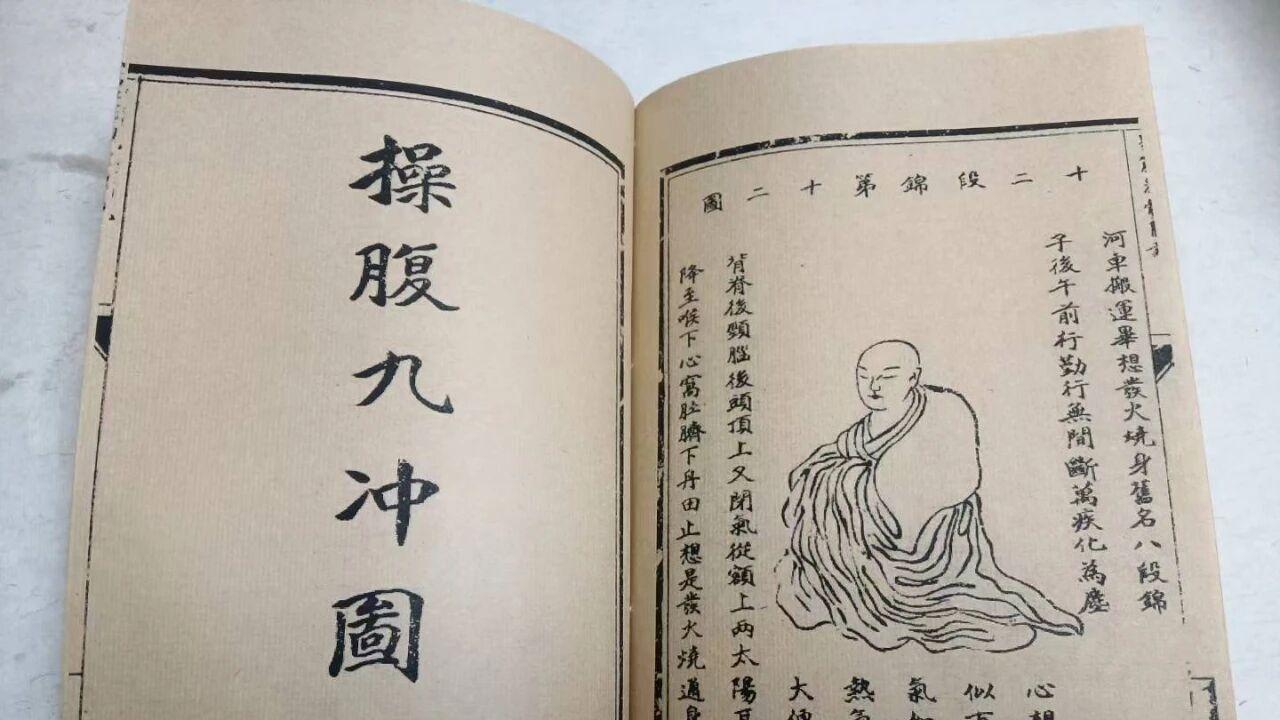 十二段錦第十二圖
河車搬運畢想發火燒身舊名八段錦
子後午前行勤行無間斷萬疾化為塵
心想
似
氣
熱氣
大便
背脊後頸腦後頭頂上又閉氣從額上兩太陽耳
降至喉下心窩肚臍下丹田止想是發火燒通身
操腹九冲圖